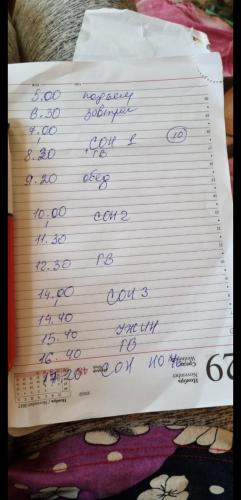 5.00 подъем
6.30 завтрак
7.00
СОН 1 (10)
8.20 ГВ
9.20 обед
10.00 СОН 2
11.30
12.30 ГВ
14.00 СОН 3
14.40
15.40 УЖИН
16.40 ГВ
17.20 СОН НОЧ
29
Среда
Ноябрь
November